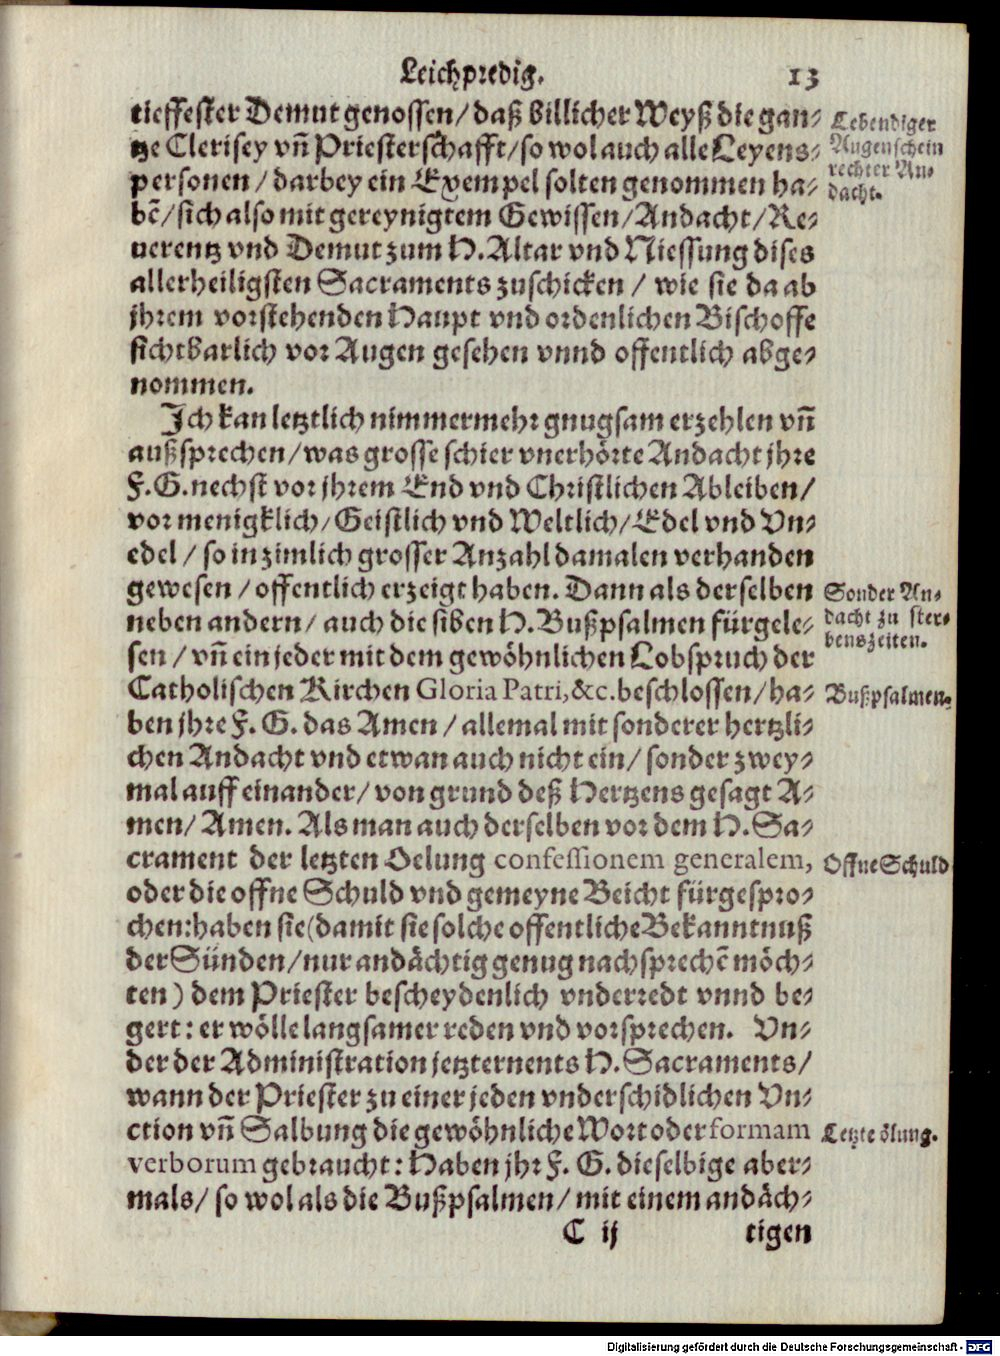 Leichpredig. 13
tieffester Demut genossen / daß billicher Weyß die gan-
tze Clerisey vñ Priesterschafft / so wol auch alle Leyens-
personen / darbey ein Exempel solten genommen ha-
bẽ / sich also mit gereynigtem Gewissen / Andacht / Re-
uerentz vnd Demut zum H. Altar vnd Niessung dises
allerheiligsten Sacraments zuschicken / wie sie da ab
jhrem vorstehenden Haupt vnd ordenlichen Bischoffe
sichtbarlich vor Augen gesehen vnnd offentlich abge-
nommen.
Lebendiger
Augenschein
rechter An-
dacht.
Jch kan letztlich nimmermehr gnugsam erzehlen vñ
außsprechen / was grosse schier vnerhörte Andacht jhre
F. G. nechst vor jhrem End vnd Christlichen Ableiben /
vor menigklich / Geistlich vnd Weltlich / Edel vnd Vn-
edel / so in zimlich grosser Anzahl damalen verhanden
gewesen / offentlich erzeigt haben. Dann als derselben
neben andern / auch die siben H. Bußpsalmen fürgele-
sen / vñ ein jeder mit dem gewöhnlichen Lobspruch der
Catholischen Kirchen Gloria Patri, &c. beschlossen / ha-
ben jhre F. G. das Amen / allemal mit sonderer hertzli-
chen Andacht vnd etwan auch nicht ein / sonder zwey-
mal auff einander / von grund deß Hertzens gesagt A-
men / Amen. Als man auch derselben vor dem H. Sa-
crament der letzten Oelung confessionem generalem,
oder die offne Schuld vnd gemeyne Beicht fürgespro-
chen: haben sie (damit sie solche offentliche Bekanntnuß
der Sünden / nur andächtig genug nachsprechẽ möch-
ten) dem Priester bescheydenlich vnderredt vnnd be-
gert: er wölle langsamer reden vnd vorsprechen. Vn-
der der Administration jetzternents H. Sacraments /
wann der Priester zu einer jeden vnderschidlichen Vn-
ction vñ Salbung die gewöhnliche Wort oder formam
verborum gebraucht: Haben jhr F. G. dieselbige aber-
mals / so wol als die Bußpsalmen / mit einem andäch-
Sonder An-
dacht zu ster-
benszeiten.
Bußpsalmen.
Offne Schuld
Letzte ölung.
C ij tigen
Digitalisierung gefördert durch die Deutsche Forschungsgemeinschaft - DFG